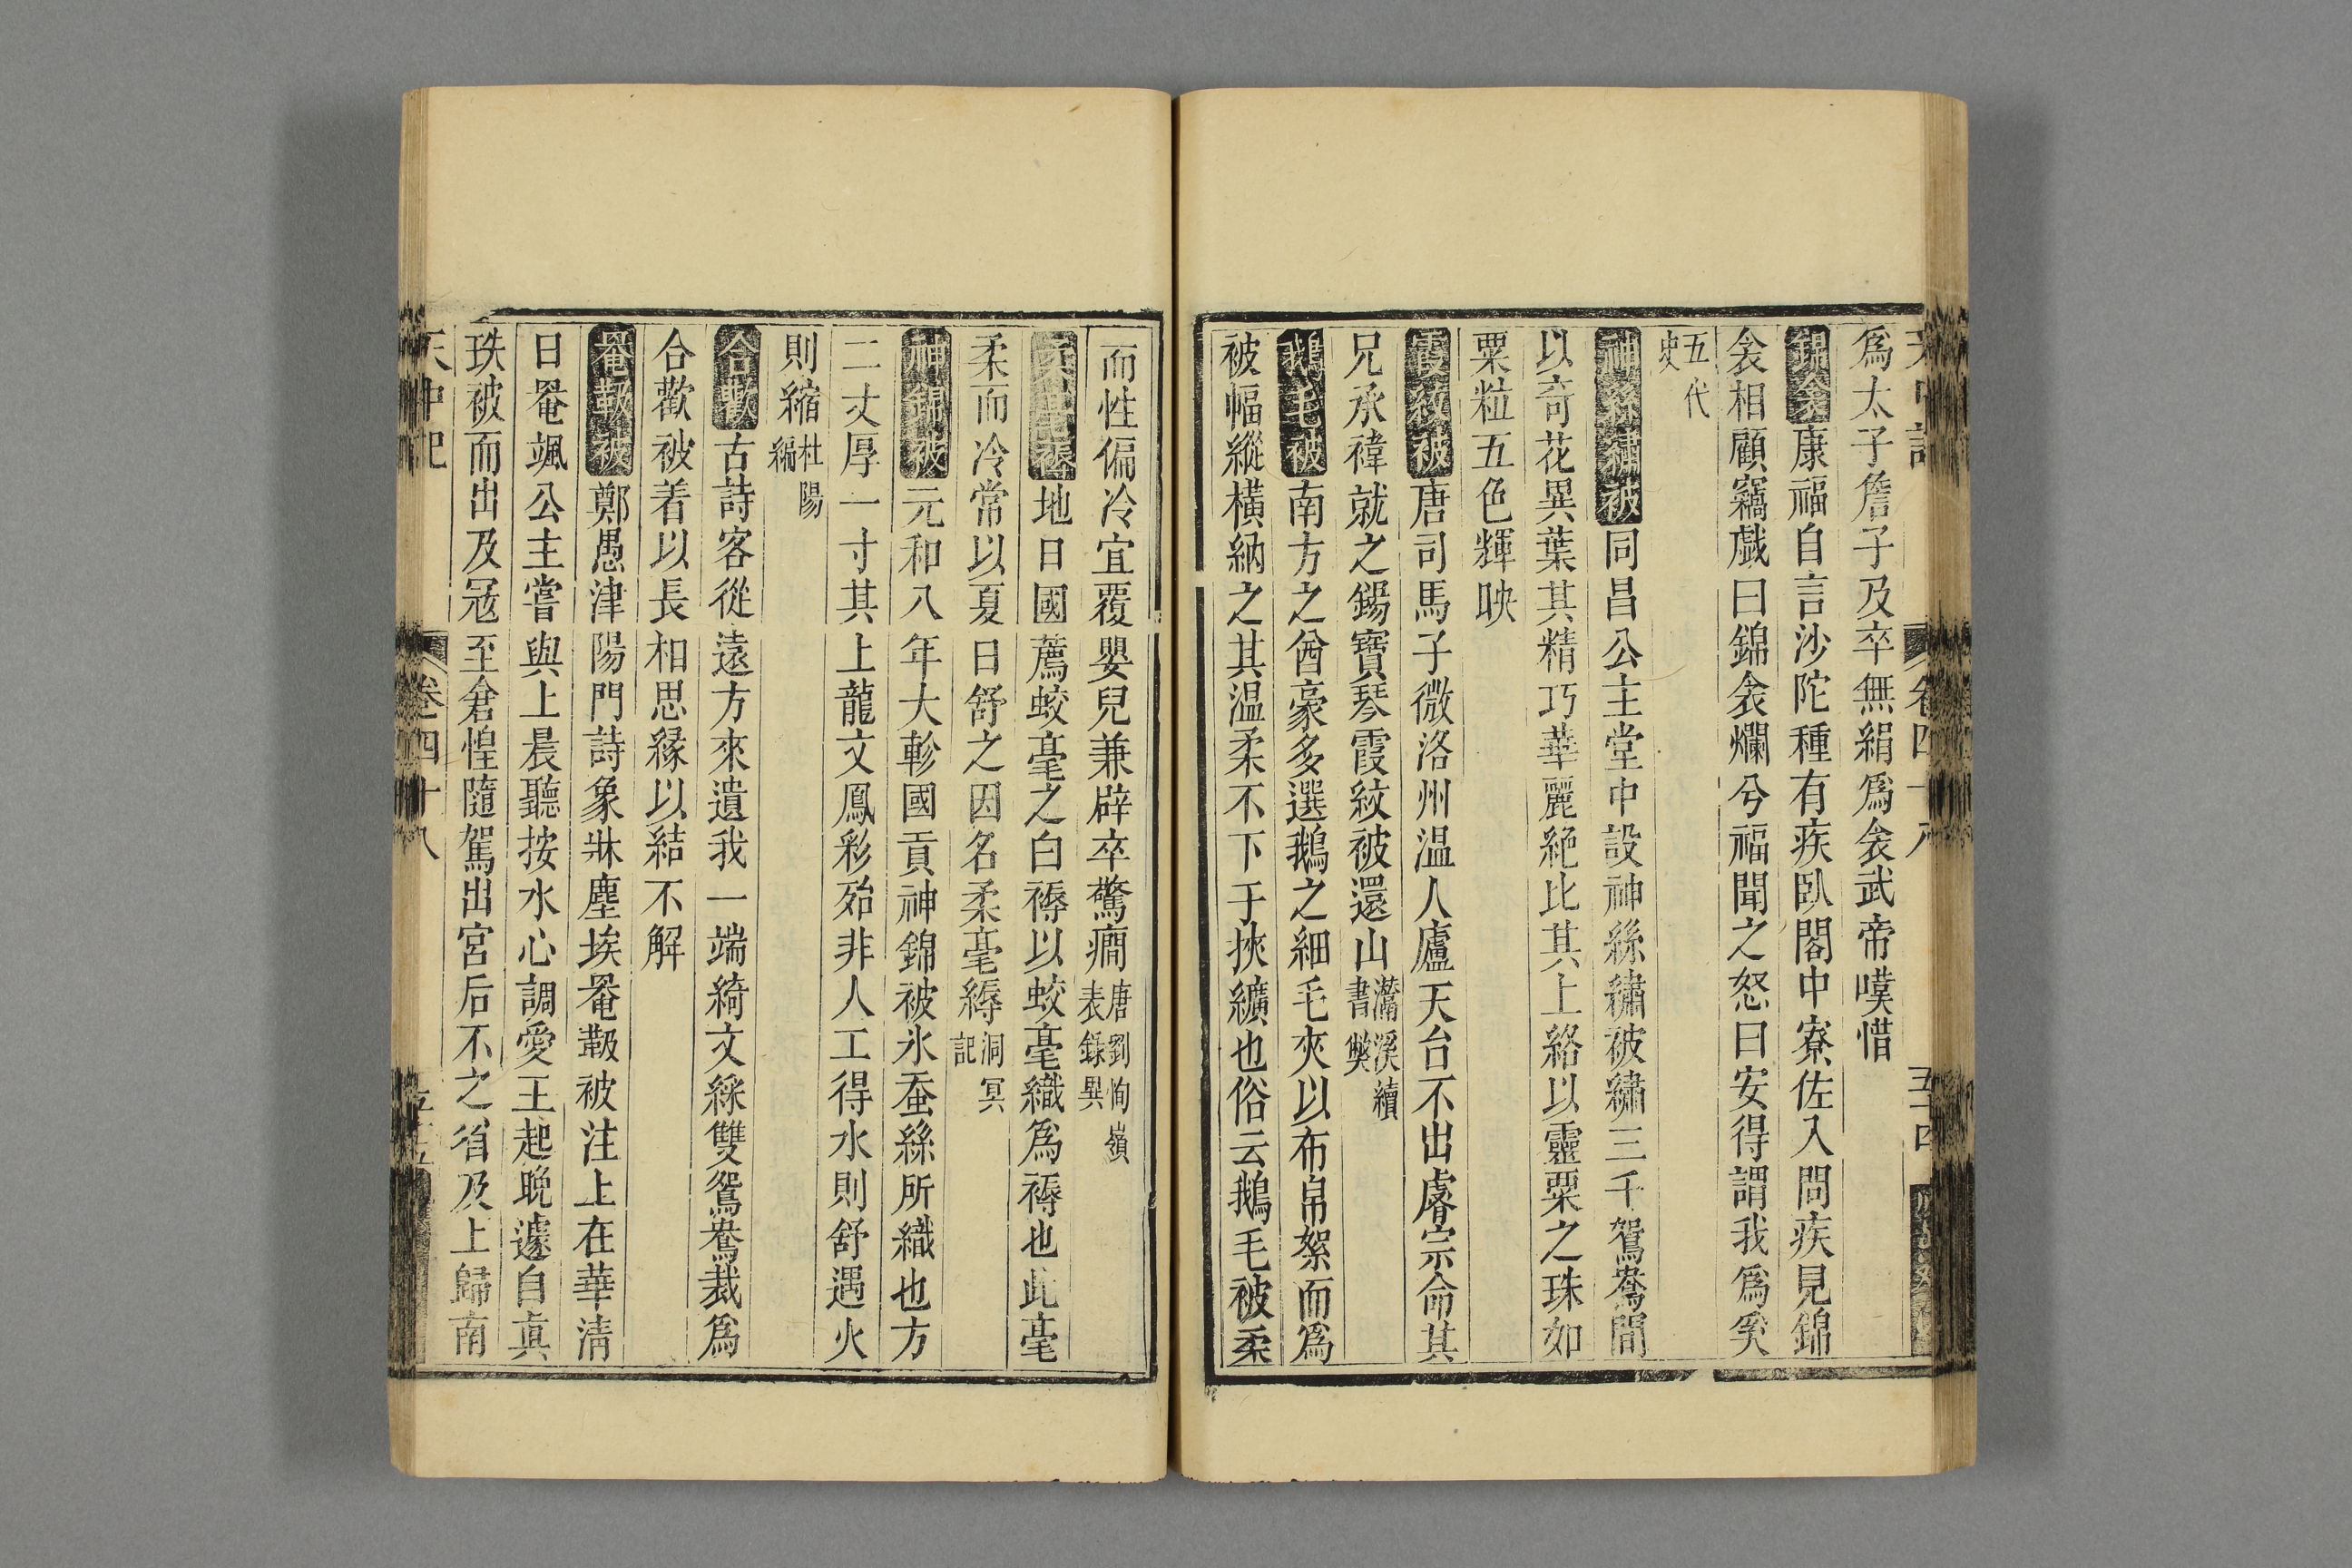 爲太子詹子及卒無絹爲衾武帝嘆惜
錦衾康福自言沙陀種有疾臥閣中寮佐入問疾見錦
衾相顧竊戲曰錦衾爛兮福聞之怒曰安得謂我爲奚
五代史
神絲繡被同昌公主堂中設神絲繡被繡三千鴛鴦間
以奇花異葉其精巧華麗絶比其上絡以靈粟之珠如
粟粒五色輝映
霞紋被唐司馬子微洛州温人廬天台不出睿宗命其
兄承禕就之錫寶琴霞紋被還山灊溪續書
鵝毛被南方之酋豪多選鵝之細毛夾以布帛絮而爲
被幅縱橫納之其温柔不下于挾纊也俗云鵝毛被柔
而性偏冷宜覆嬰兒兼辟卒驚癎唐劉恂嶺表錄異
柔毫褥地日國薦蛟毫之白褥以蛟毫織爲褥也此毫
柔而冷常以夏日舒之因名柔毫縟洞冥記
神錦被元和八年大軫國貢神錦被氷蚕絲所織也方
二丈厚一寸其上龍文鳳彩殆非人工得水則舒遇火
則縮杜陽編
合歡古詩客從遠方來遺我一端綺文綵雙鴛鴦裁爲
合歡被着以長相思緣以結不解
罨𩎟被鄭愚津陽門詩象牀塵埃罨𩎟被注上在華清
日罨颯公主嘗與上晨聽按水心調愛王起晚遽自眞
珠被而出及冦至倉惶隨駕出宮后不之省及上歸南
天中記
卷四十八